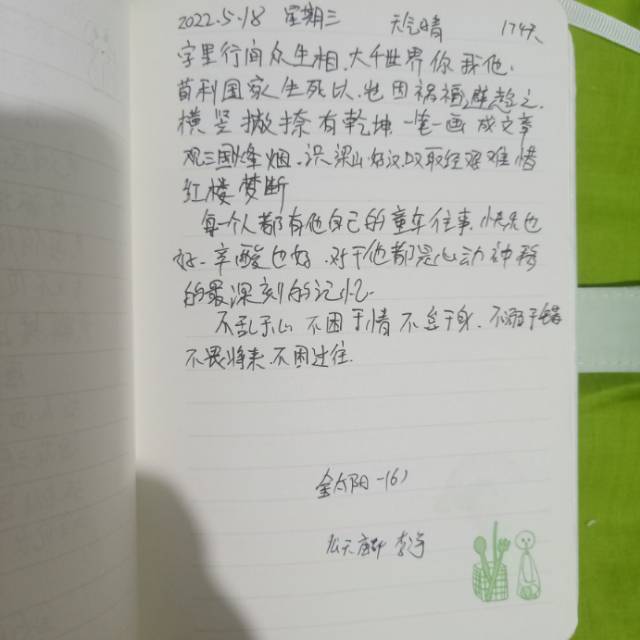 2022.5.18 星期三 天气晴 174天
字里行间众生相、大千世界你我他、
苟利国家生死以、岂因祸福避趋之、
横竖撇捺有乾坤 一笔一画成文章
观三国烽烟、识梁山好汉叹取经艰难惜
红楼梦断
每个人都有他自己的童年往事、快乐也
好、辛酸也好、对于他都是心动神移
的最深刻的记忆、
不乱于心 不困于情 不念于身、
不畏将来 不困过往
金太阳-161